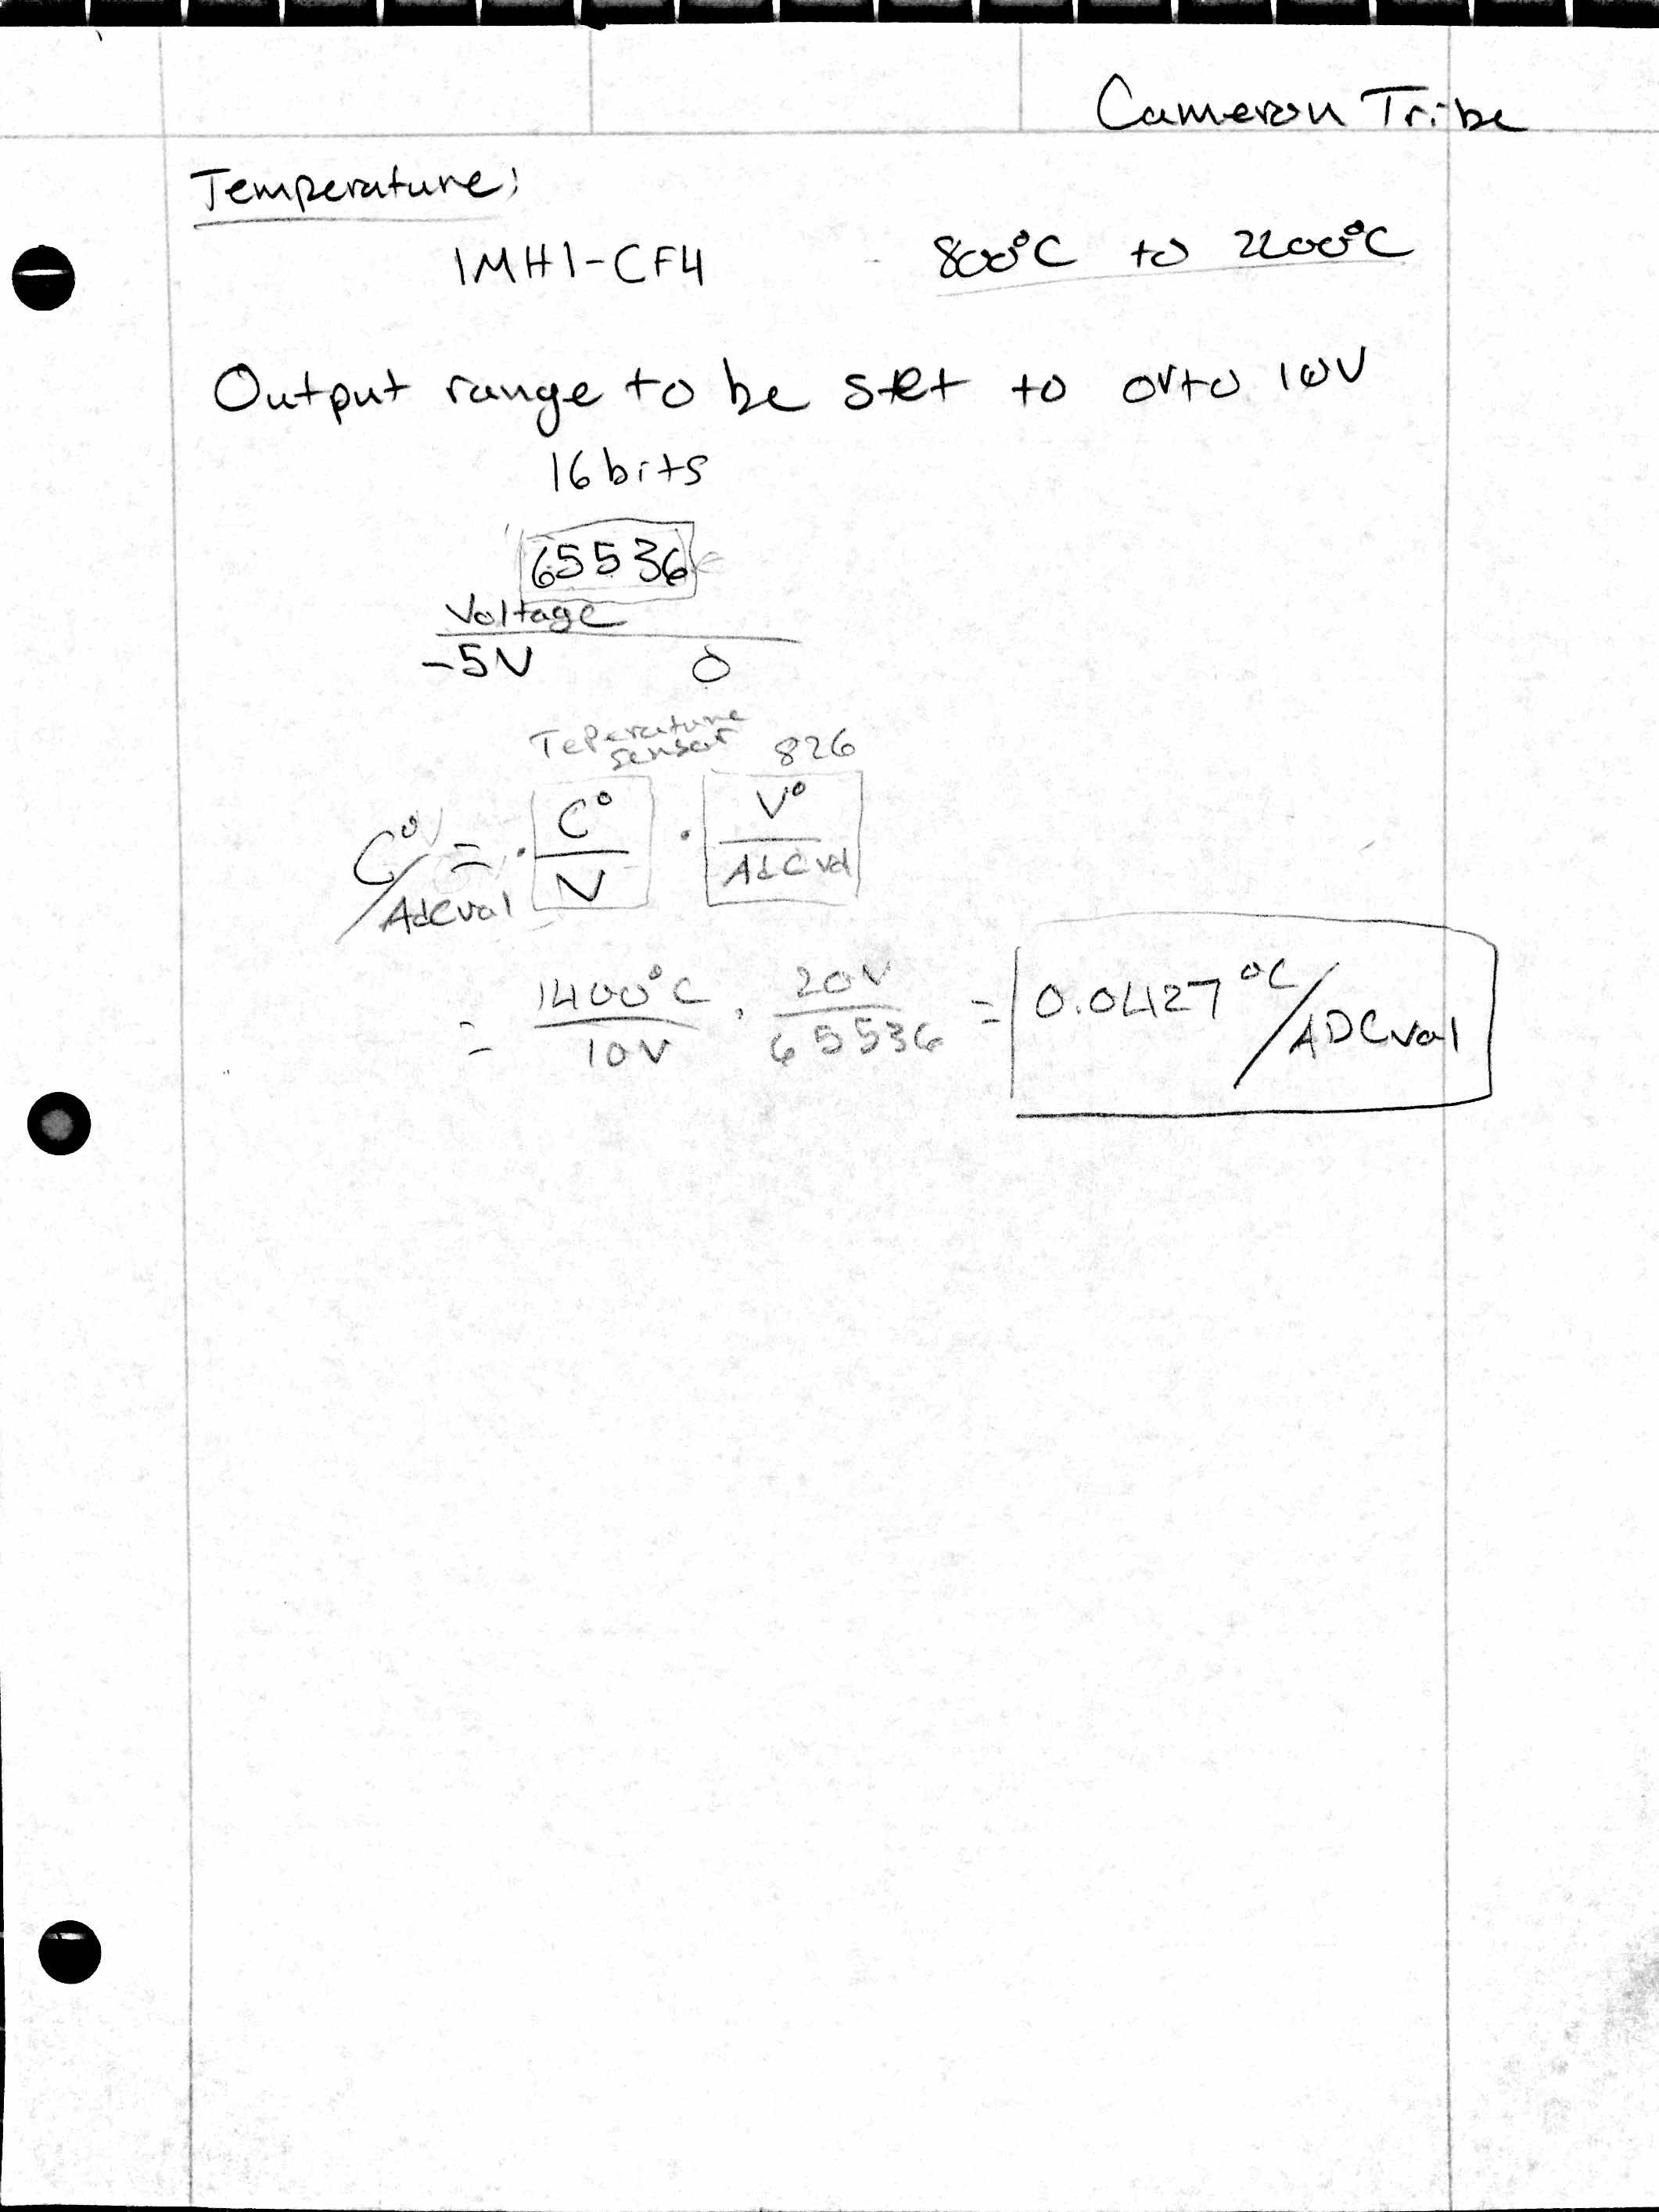 Cameron Tribe
Temperature:
1MH1-CF4 800°C to 2200°C
Output range to be set to 0V to 10V
16 bits
65536
Voltage
-5V 0
Teperature
sensor 826
C°/Adcval = · C°/V · V°/Adcval
= 1400°C/10V · 20V/65536 = 0.0427 °C/ADCval